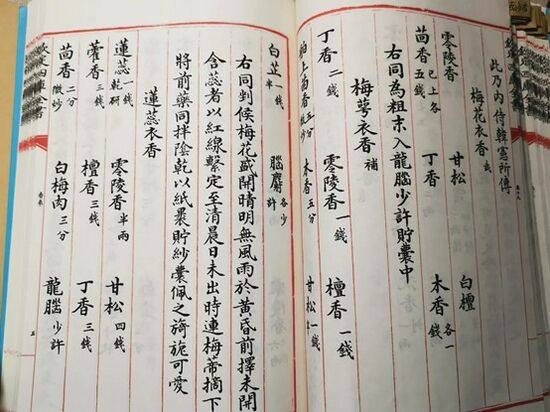 欽定四庫全書
此乃内侍韓憲所傳
梅花衣香 武
零陵香 甘松 白檀
茴香 已上各五錢 丁香 木香 各一錢
右同為粗末入龍腦少許貯囊中
梅萼衣香 補
丁香 二錢 零陵香 一錢 檀香 一錢
舶上茴香 五分微炒 木香 五分 甘松 一錢
白芷 一錢半 腦麝 各少許
右同剉候梅花盛開晴明無風雨於黄昏前擇未開
含蕊者以紅線繫定至清晨日未出時連梅蒂摘下
將前藥同拌陰乾以紙裹貯紗囊佩之旖旎可愛
蓮蕊衣香
蓮蕊 一錢乾研 零陵香 半兩 甘松 四錢
藿香 三錢 檀香 三錢 丁香 三錢
茴香 二分微炒 白梅肉 三分 龍腦 少許
欽定四庫全書
五